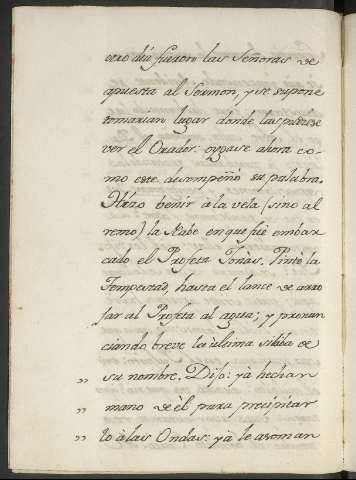 otro dia fueron las Señoras de
apuesta al Sermon, y se supone
tomarian lugar donde las pudiese
ver el Orador: oygase ahora co-
mo este desempeñó su palabra.
Hizo benir à la vela (sino al
remo) la Nube en que fué embar
cado el Profeta Jonas. Pintó la
Tempestad, hasta el lance de arro
jar al Profeta al agua; y pronun
ciando breve la ultima silaba de
„ su nombre. Dijo: yà hechan
„ mano de èl para precipitar
„ lo à las Ondas: yà le asoman